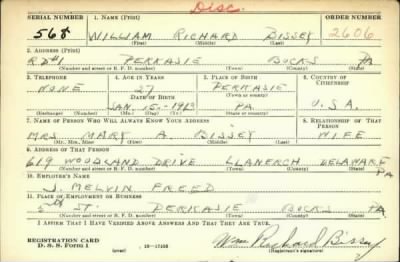 Disc.
SERIAL NUMBER 1. NAME (Print) ORDER NUMBER
568 WILLIAM RICHARD BISSEY 2606
(First) (Middle) (Last)
2. ADDRESS (Print)
R.D #1 PERKASIE BUCKS PA
(Number and street or R. F. D. number) (Town) (County) (State)
3. TELEPHONE 4. AGE IN YEARS 5. PLACE OF BIRTH 6. COUNTRY OF CITIZENSHIP
NONE 27 PERKASIE
DATE OF BIRTH (Town or county)
JAN. 15. - 1913 PA U.S.A.
(Exchange) (Number) (Mo.) (Day) (Yr.) (State or country)
7. NAME OF PERSON WHO WILL ALWAYS KNOW YOUR ADDRESS 8. RELATIONSHIP OF THAT PERSON
MRS MARY A. BISSEY WIFE
(Mr., Mrs., Miss) (First) (Middle) (Last)
9. ADDRESS OF THAT PERSON
619 WOODLAND DRIVE LLANERCH DELAWARE PA
(Number and street or R. F. D. number) (Town) (County) (State)
10. EMPLOYER'S NAME
J. MELVIN FREED
11. PLACE OF EMPLOYMENT OR BUSINESS
5th ST. PERKASIE BUCKS PA.
(Number and street or R. F. D. number) (Town) (County) (State)
I AFFIRM THAT I HAVE VERIFIED ABOVE ANSWERS AND THAT THEY ARE TRUE.
REGISTRATION CARD
D. S. S. Form 1 (over) 16—17105 Wm Richard Bissey
(Registrant's signature)